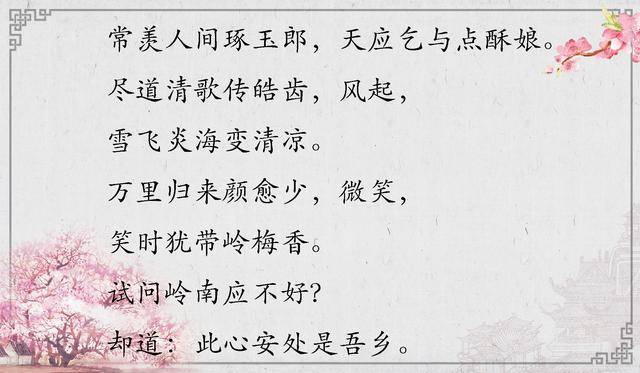 常羡人间琢玉郎，天应乞与点酥娘。
尽道清歌传皓齿，风起，
雪飞炎海变清凉。
万里归来颜愈少，微笑，
笑时犹带岭梅香。
试问岭南应不好？
却道：此心安处是吾乡。